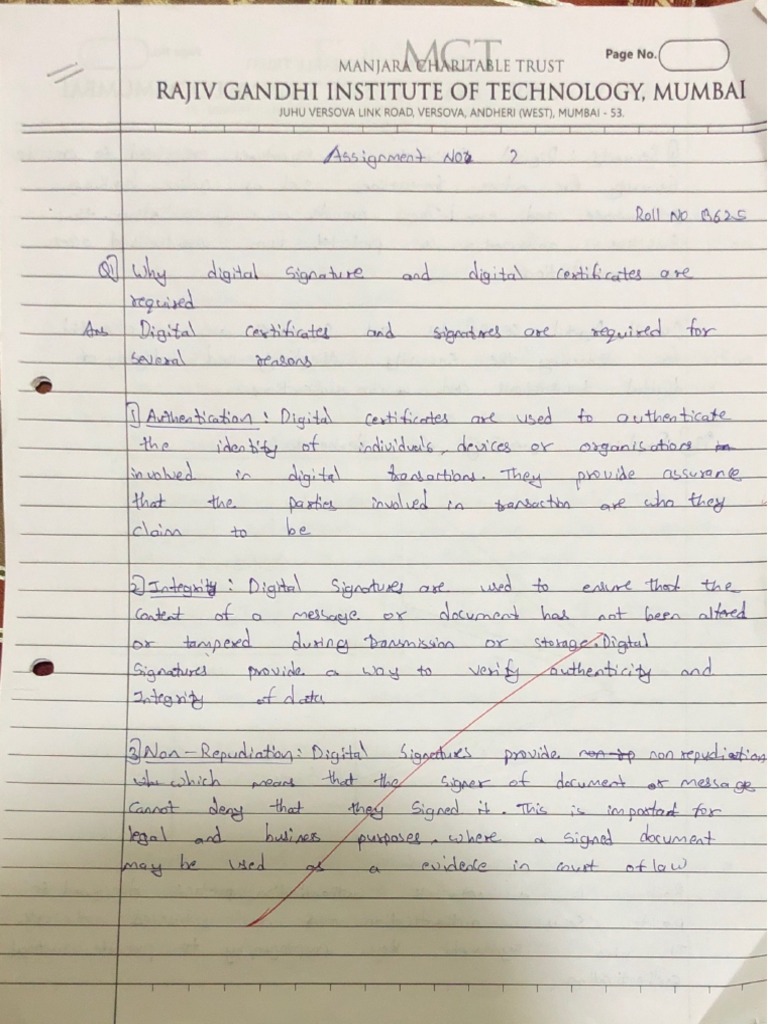 MCT
Page No.
MANJARA CHARITABLE TRUST
RAJIV GANDHI INSTITUTE OF TECHNOLOGY, MUMBAI
JUHU VERSOVA LINK ROAD, VERSOVA, ANDHERI (WEST), MUMBAI - 53.
Assignment No 2
Roll No B625
Q1 Why digital signature and digital certificates are
required
Ans Digital certificates and signatures are required for
several reasons
1) Authentication : Digital certificates are used to authenticate
the identity of individuals, devices or organisation
involved in digital transactions. They provide assurance
that the parties involved in transaction are who they
claim to be
2) Integrity : Digital Signatures are used to ensure that the
content of a message or document has not been altered
or tampered during transmission or storage. Digital
Signatures provide a way to verify authenticity and
Integrity of data
3) Non-Repudiation : Digital Signatures provide non repudiation
which means that the signer of document or message
cannot deny that they signed it. This is important for
legal and business purposes, where a signed document
may be used as a evidence in court of law